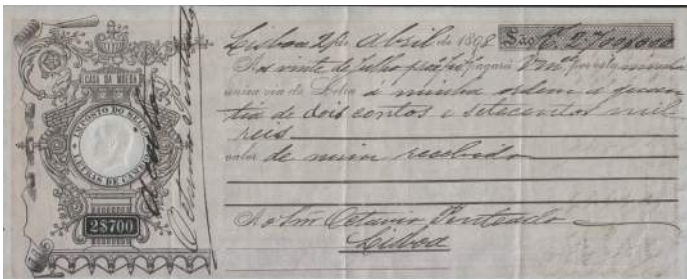 CASA DA MOEDA
IMPOSTO DO SELLO
LETRAS DE CAMBIO
2$700
Lisboa 2 de Abril de 1898 São R. 2.700$000
Aos vinte de Julho proximo pagará V. m.ce por esta minha
unica via de Letra a minha ordem a quan
tia de dois contos e setecentos mil
reis
valor de mim recebido
Ao Ilmo Octavio Penteado
Lisboa